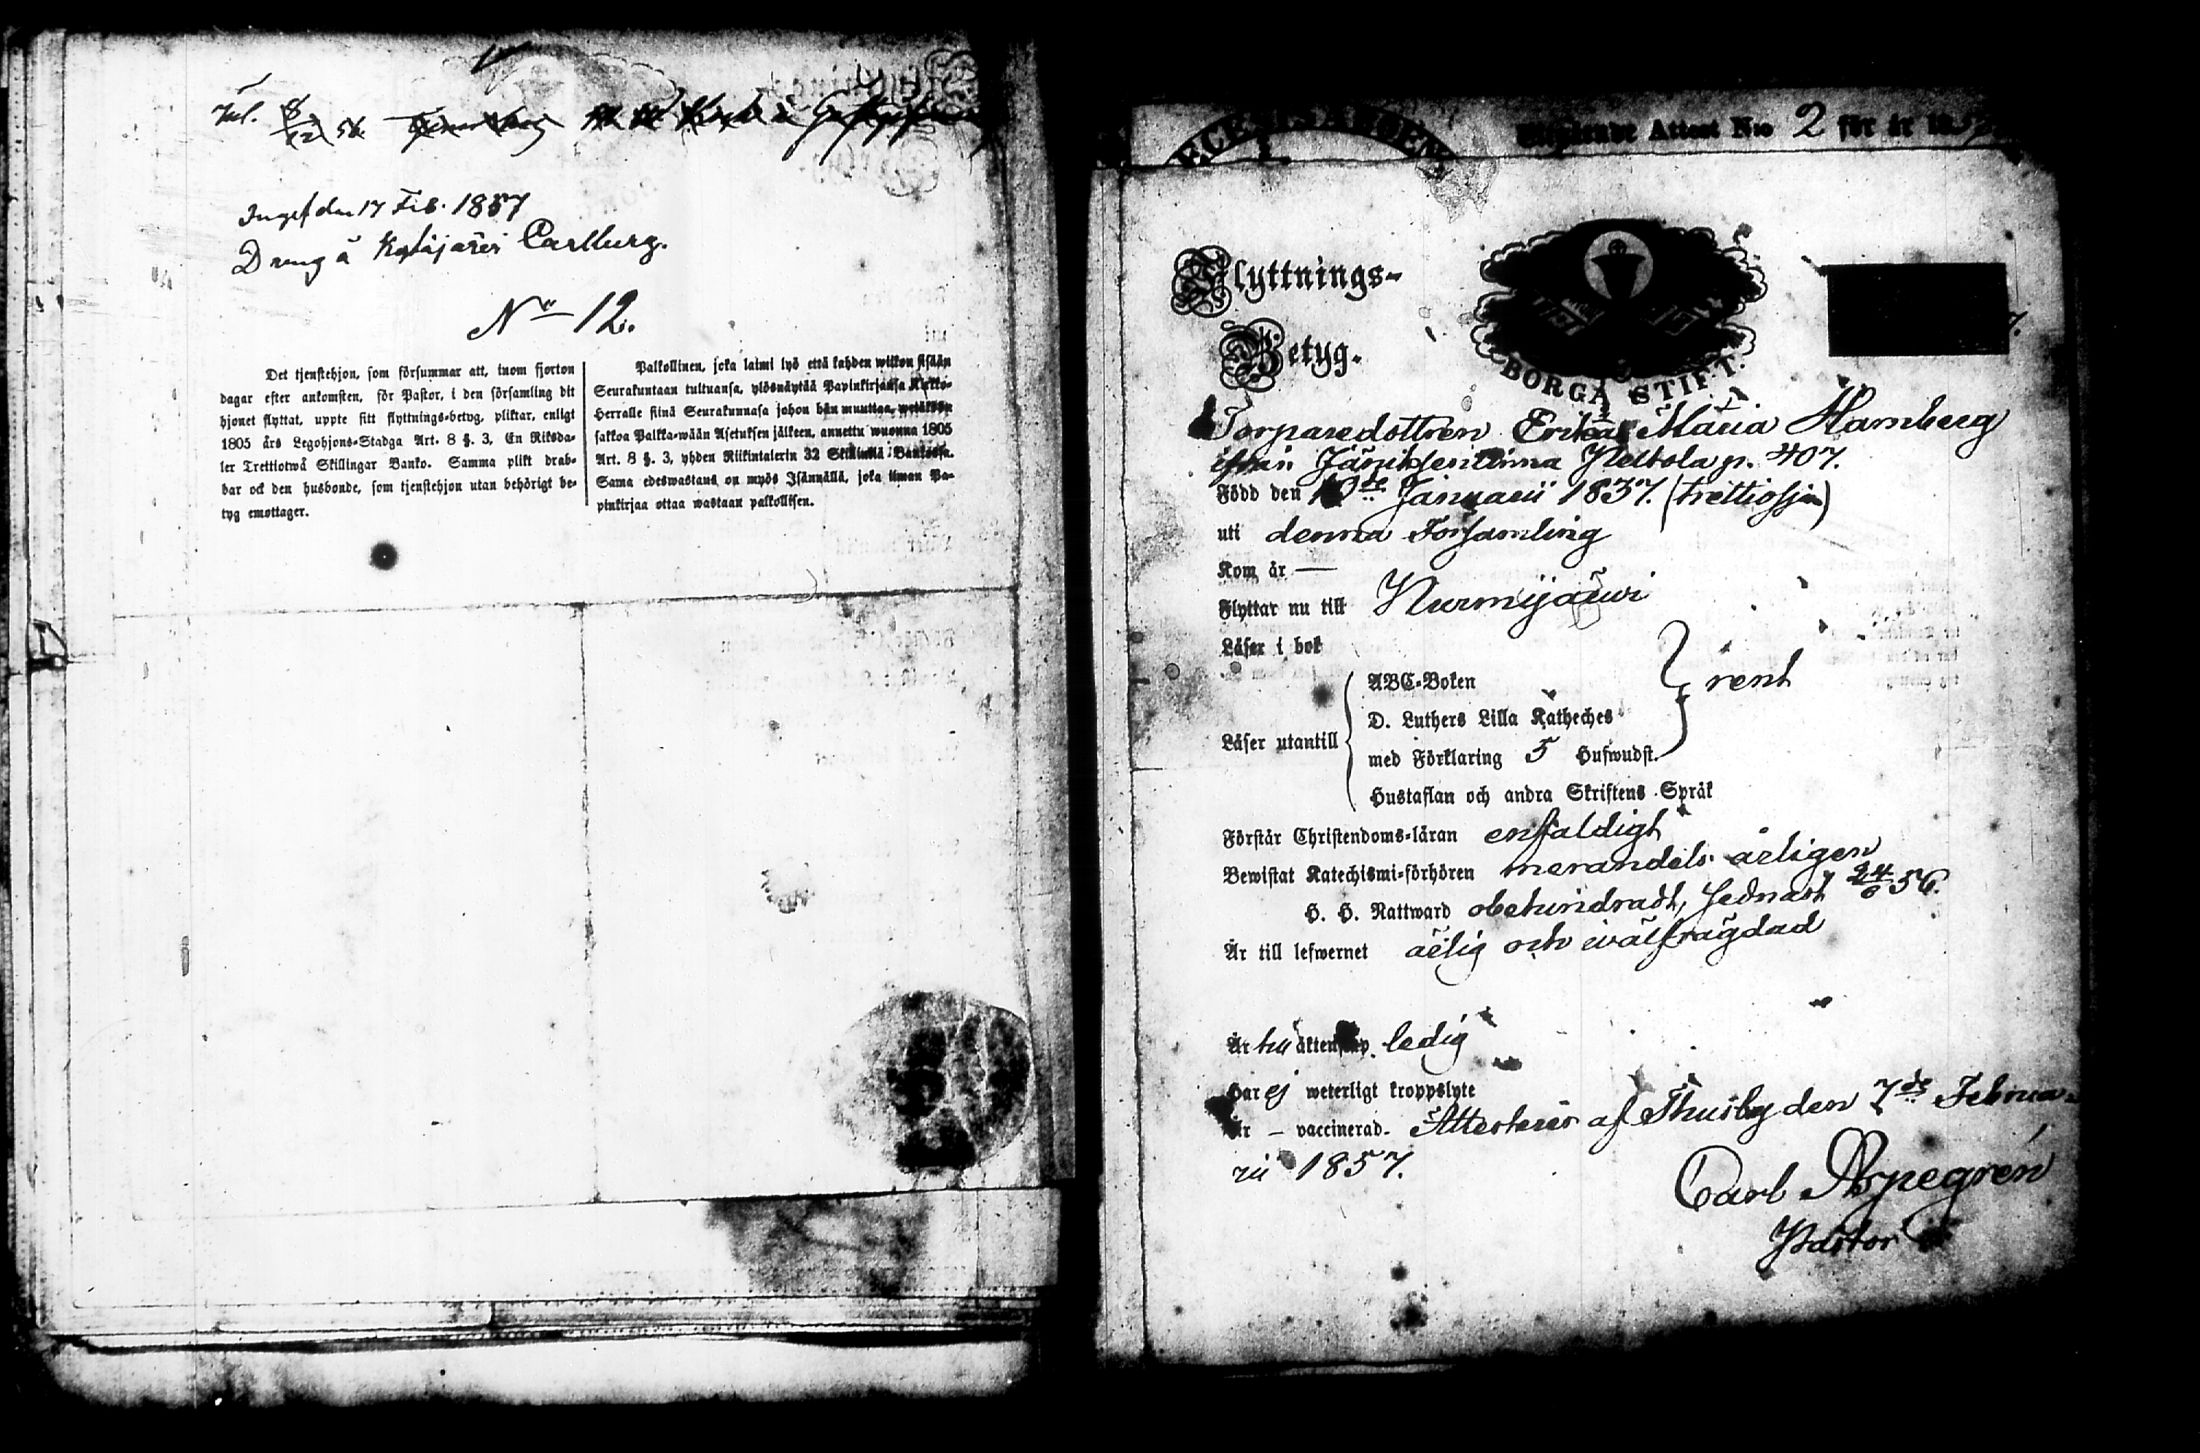 Ingef den 17 Feb. 1857
Dreng å Kytäjärvi Carlberg.
No 12.
Det tjenstehjon, som försummar att, inom fjorton
dagar efter ankomsten, för Pastor, i den församling dit
hjonet flyttat, uppte sitt flyttnings-betyg, pliktar, enligt
1805 års Legohjons-Stadga Art. 8 §. 3, En Riksda-
ler Trettiotwå Skillingar Banko. Samma plikt drab-
bar ock den husbonde, som tjenstehjon utan behörigt be-
tyg emottager.
Palkollinen, joka laimi lyö että kahden wiikon sisään
Seurakuntaan tultuansa, ylösnäytää Papinkirjansa Kirkko-
Herralle siinä Seurakunnasa johon hän muuttaa, wetäköön
sakkoa Palkka-wään Asetuksen jälkeen, annettu wuonna 1805
Art. 8 §. 3, yhden Riikintalerin 32 Skillinkiä Bankossa.
Sama edeswastaus on myös Isännällä, joka ilman Pa-
pinkirjaa ottaa wastaan palkollisen.
Attest No 2 för år 18
Flyttnings-
Betyg.
BORGÅ STIFT.
Torparedottren Erika Maria Hamberg
ifrån Jäniksenlinna Nettola p. 407.
Född den 10de Januarii 1837. (trettiosju)
uti denna Församling
Kom år —
Flyttar nu till Nurmijärwi
Läser i bok
Läser utantill
ABC-Boken
D. Luthers Lilla Katheches
med Förklaring 5 Hufwudst.
Hustaflan och andra Skriftens Språk
rent
Förstår Christendoms-läran enfaldigt
Bewistat Katechismi-förhören merandels årligen
H. H. Nattward obehindradt, sednast 24/8 56.
Är till lefwernet ärlig och wälfrägdad
Är till äktenskap ledig
Har ej weterligt kroppslyte
Är — vaccinerad. Attesterar af Thusby den 7de Februa-
rii 1857.
Carl Aspegrén
Pastor